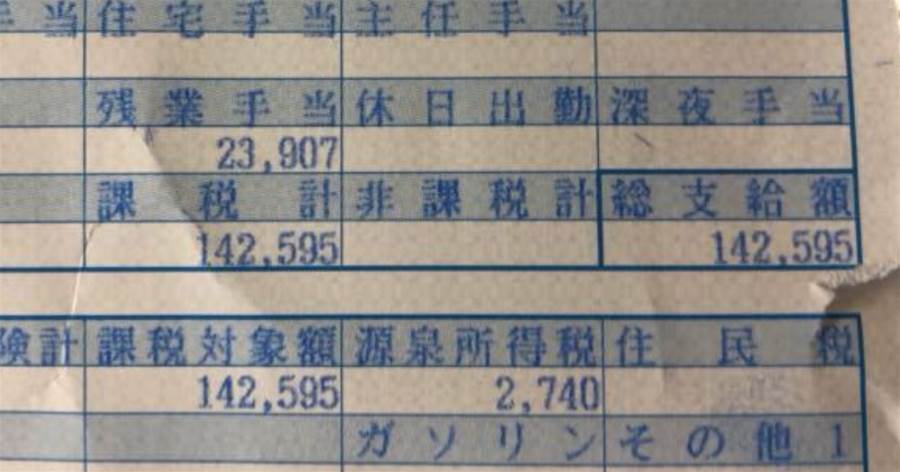 手当 住宅手当 主任手当
残業手当 休日出勤 深夜手当
23,907
課税計 非課税計 総支給額
142,595 142,595
険計 課税対象額 源泉所得税 住民税
142,595 2,740
ガソリン その他1